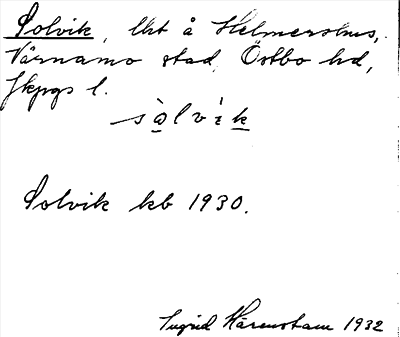 Solvik, lht å Helmershus,
Värnamo stad, Östbo hd,
Jkpgs l.
sòlvìk
Solvik kb 1930.
Ingrid Härenstam 1932